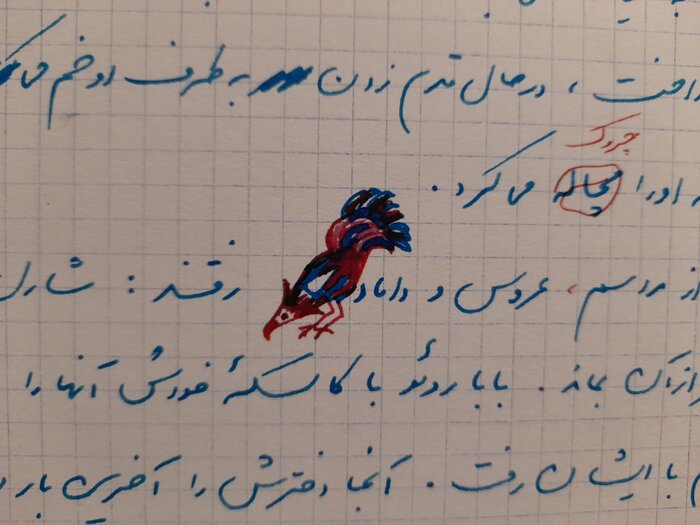 ، در حال قدم زدن به طرف او خم
چروک
او را مچاله می کرد .
از مراسم، عروس و داماد رفتند : شارل
از آن بماند . بابا روئو با کالسکهٔ خودش آنها را
با ایشان رفت . آنجا دخترش را آخرین بار